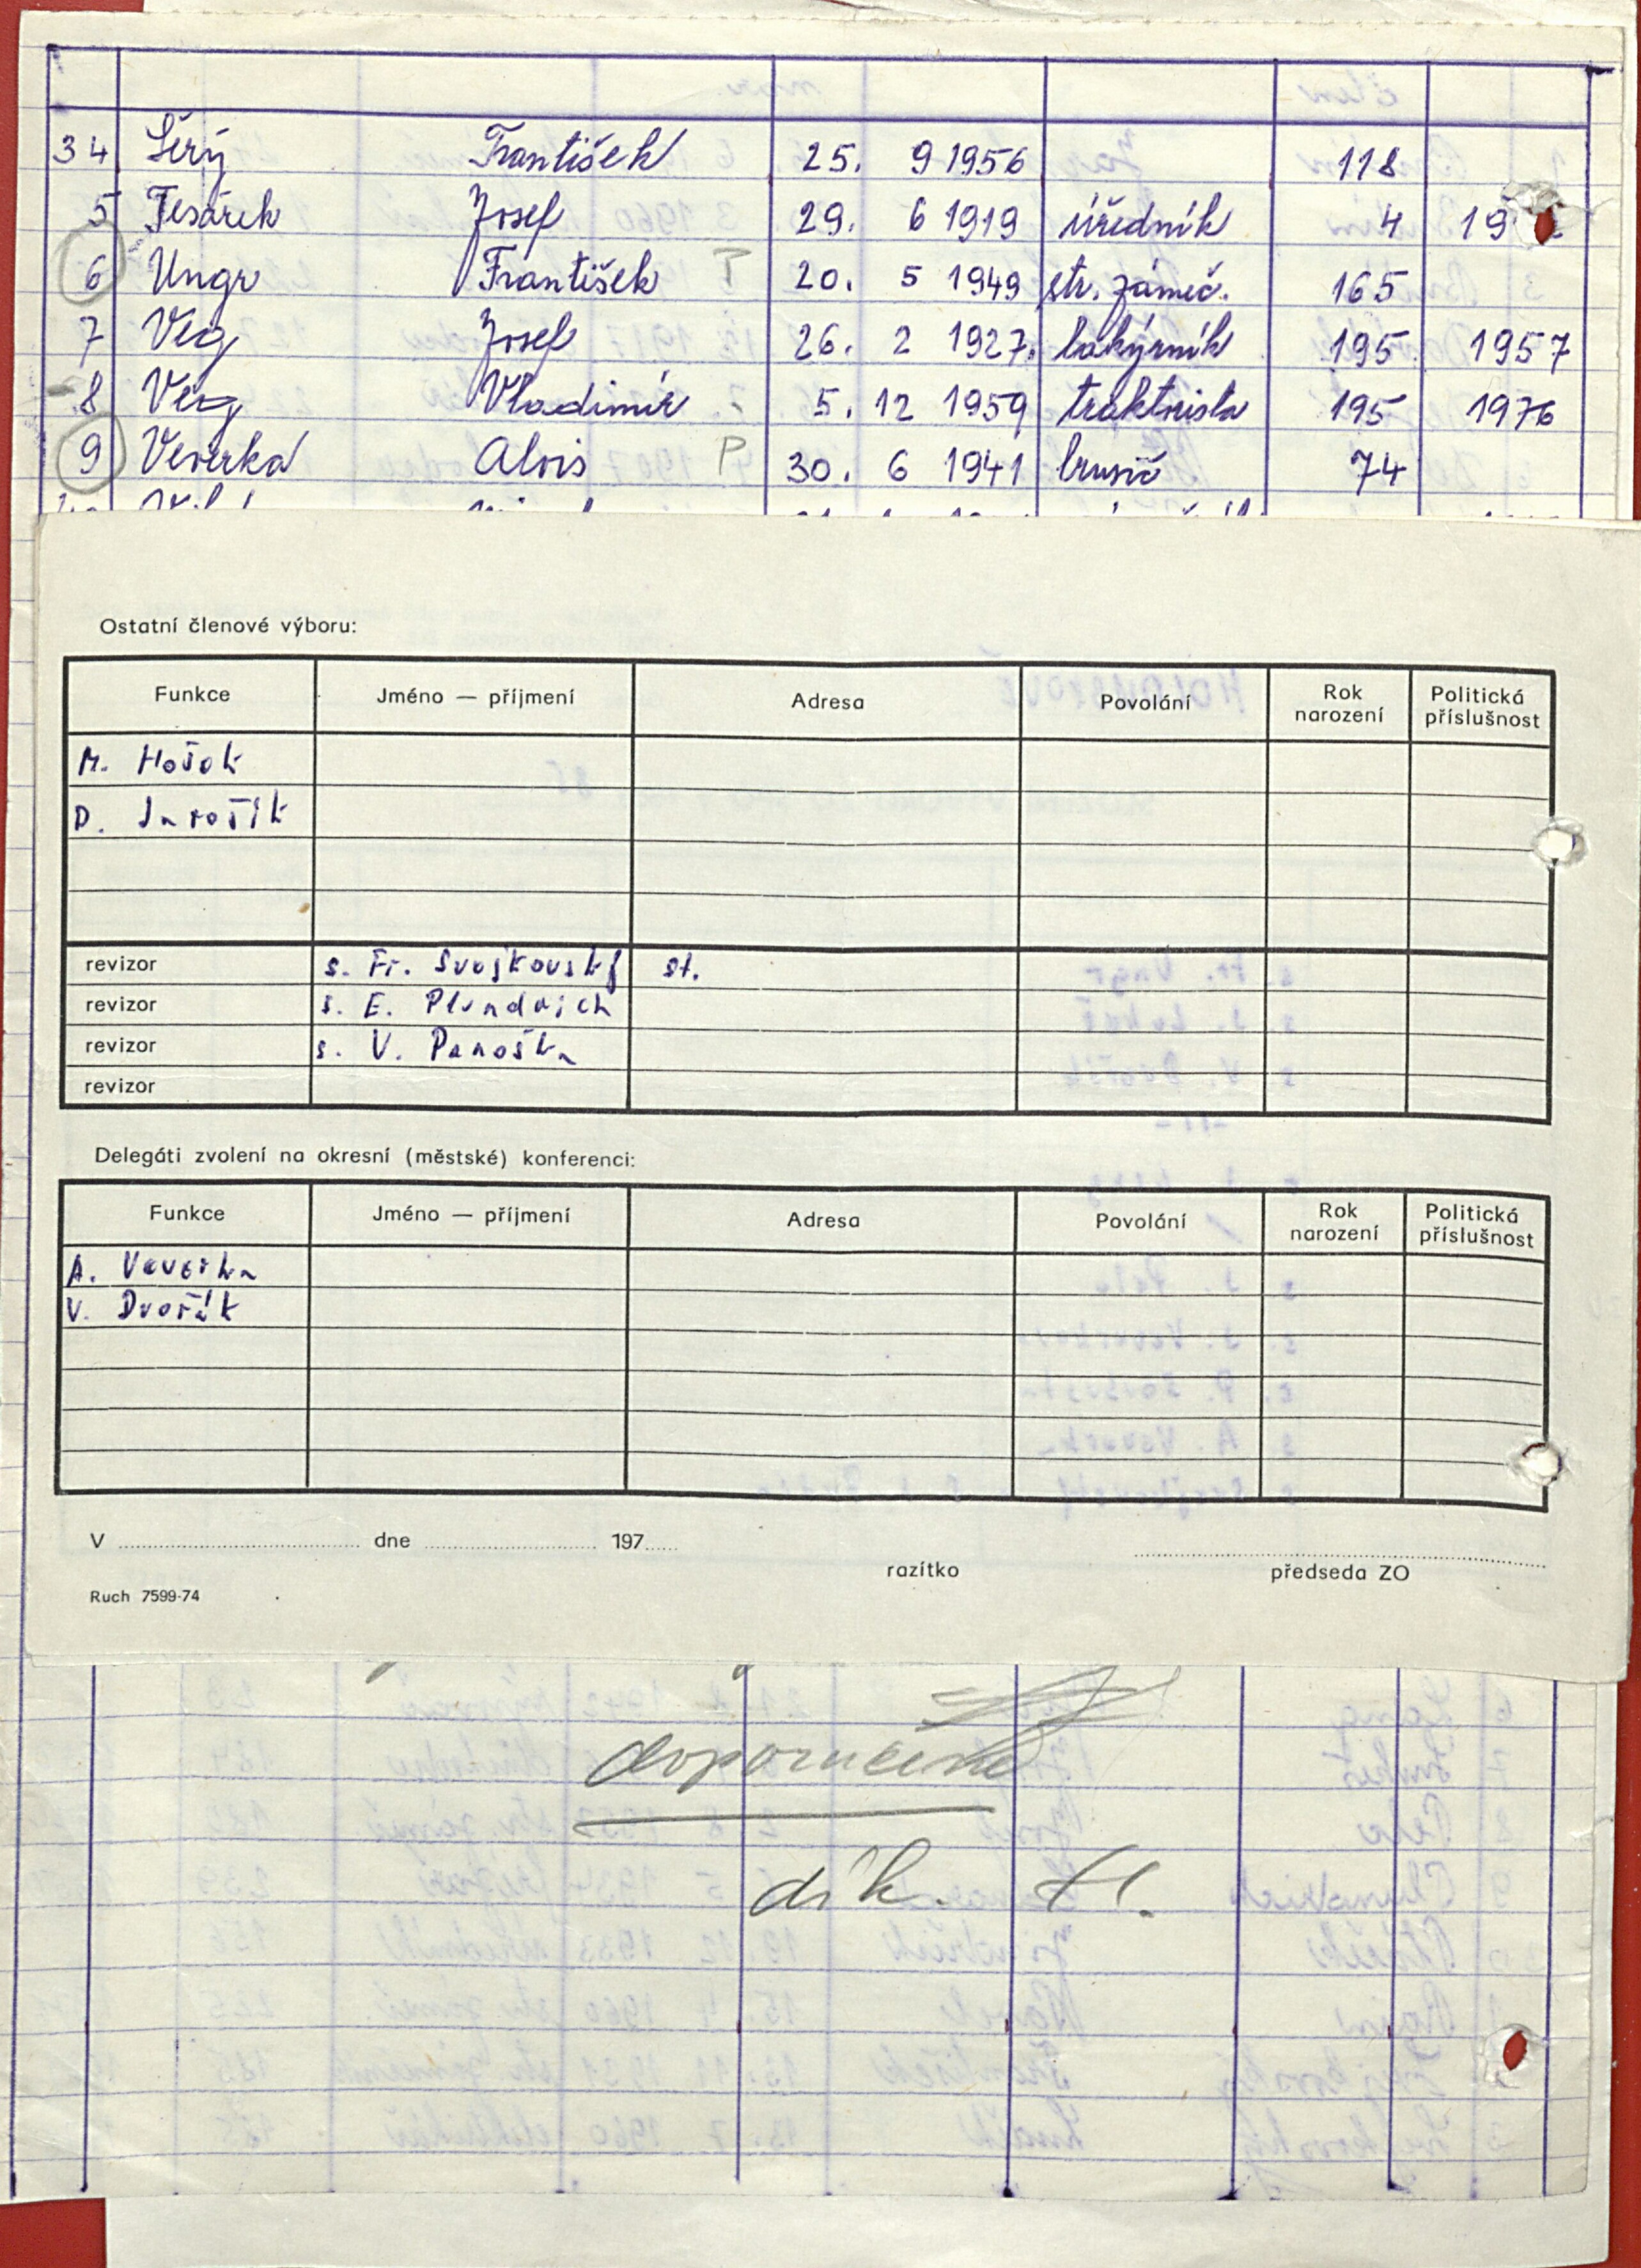 34 Šerý František 25. 9 1956 118
5 Tesárek Josef 29. 6 1919 úředník 4
6 Ungr František P 20. 5 1949 str. zámeč. 165
7 Veg Josef 26. 2 1927. lakýrník 195 1957
8 Veg Vladimír 5. 12 1959 traktorista 195 1976
9 Veverka Alois P 30. 6 1941 brusič 74
Ostatní členové výboru:
Funkce Jméno — příjmení Adresa Povolání Rok narození Politická příslušnost
M. Hošek
D. Jarošík
revizor s. Fr. Svojkovský st.
revizor s. E. Plundrich
revizor s. V. Panoška
revizor
Delegáti zvolení na okresní (městské) konferenci:
Funkce Jméno — příjmení Adresa Povolání Rok narození Politická příslušnost
A. Veverka
V. Dvořák
V dne 197
razítko předseda ZO
Ruch 7599-74
doporučeně
dík. H.